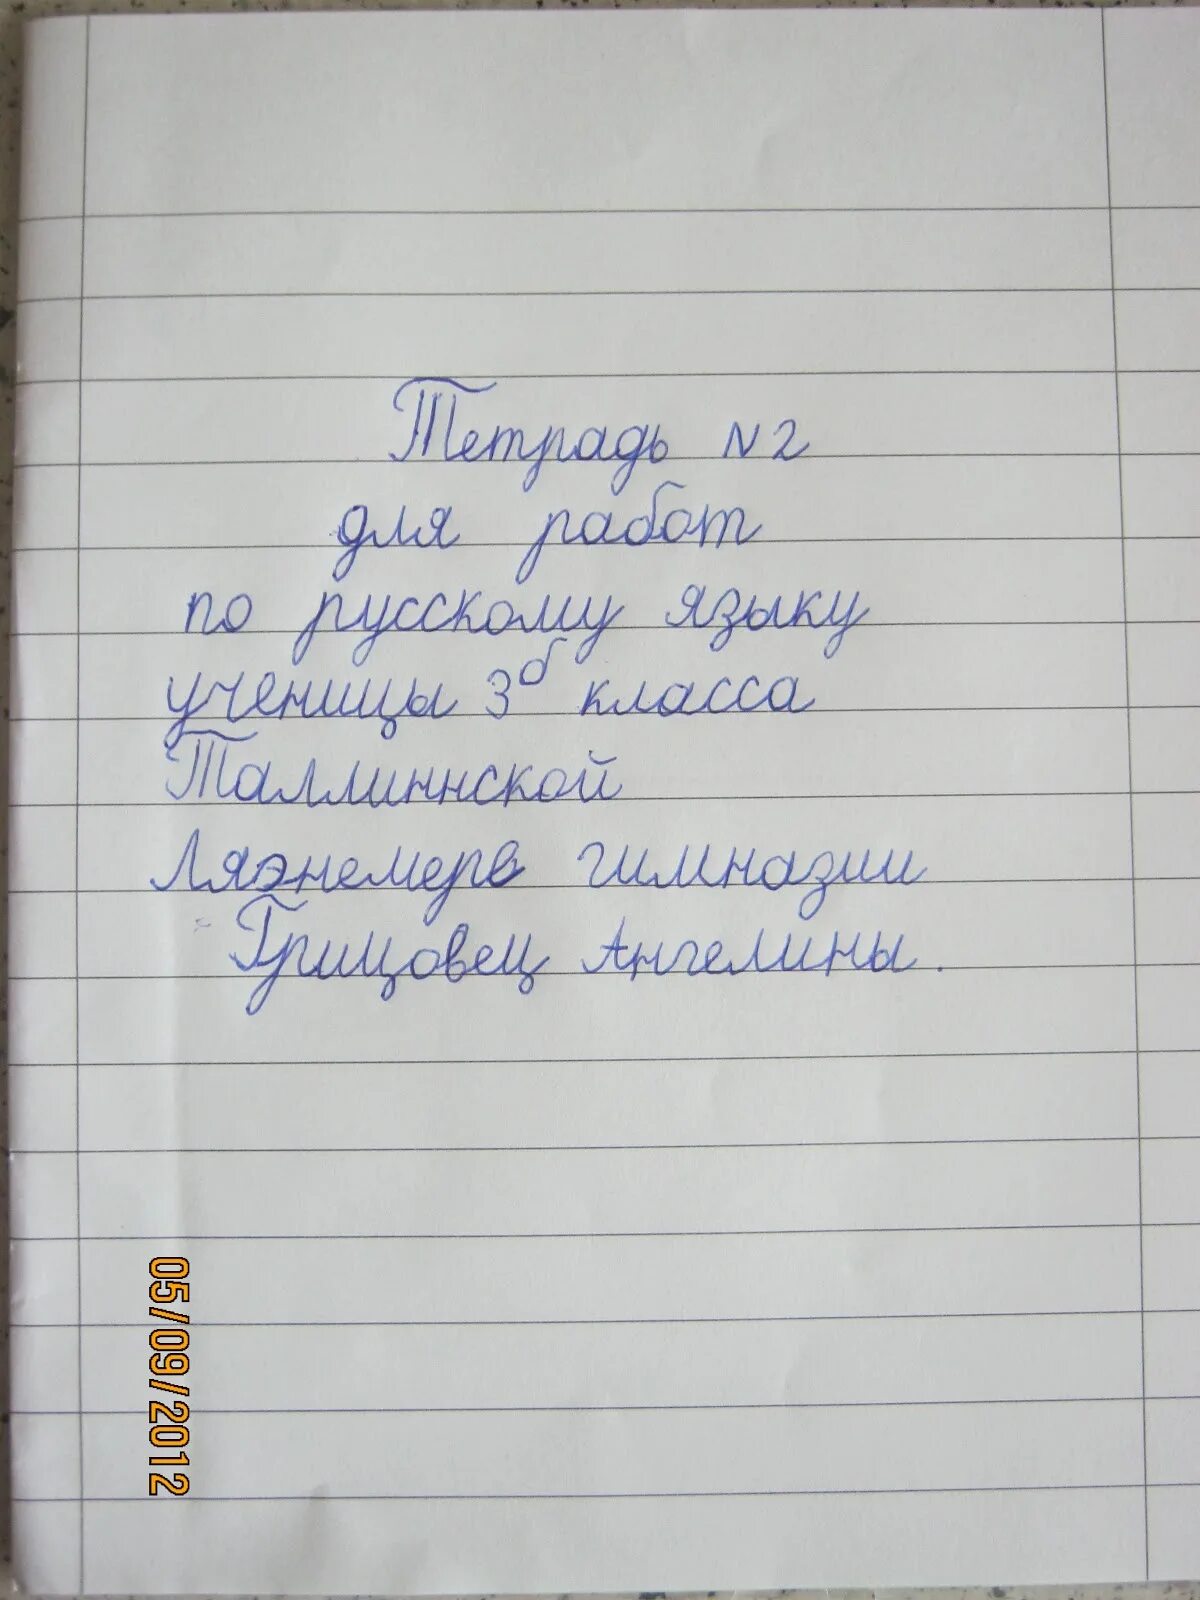 Тетрадь N2
для работ
по русскому языку
ученицы 3б класса
Таллиннской
Ляэнемере гимназии
Грицовец Ангелины.
05/09/2012